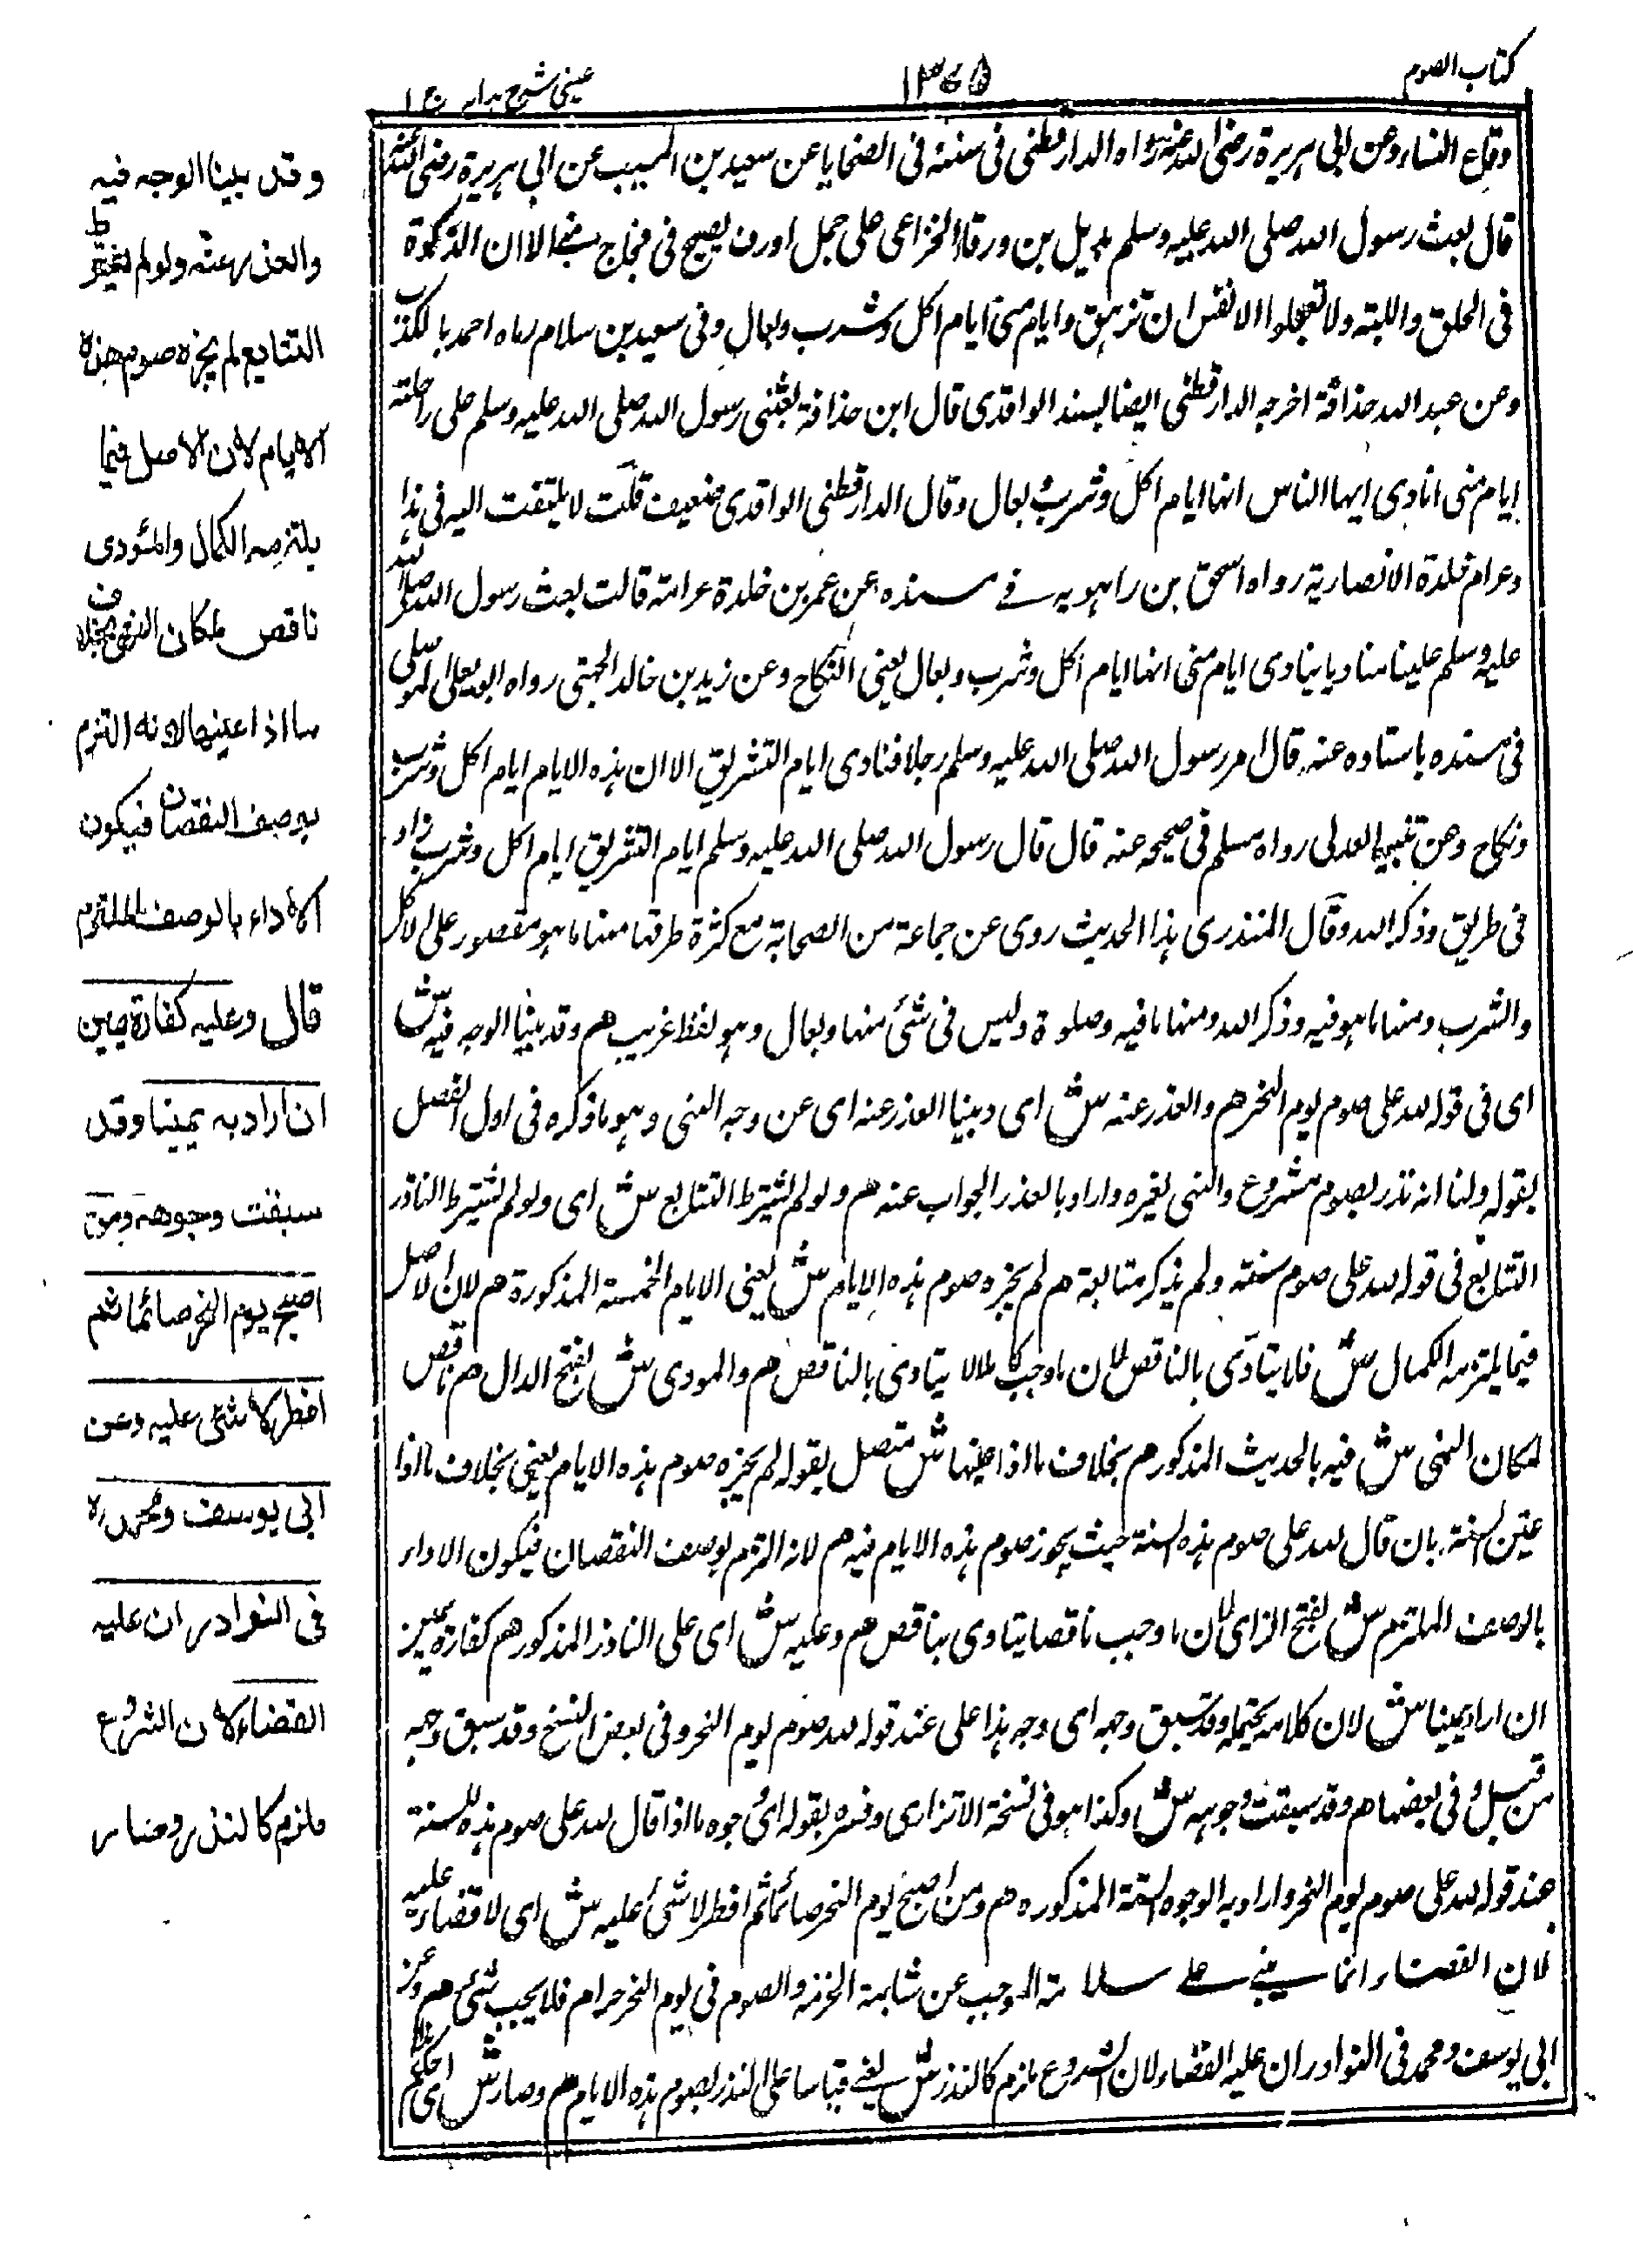 كتاب الصوم
١٣٦٥
عيني شرح هدايه ج ١
وقاع النساء وعن ابي هريرة رضي الله عنه رواه الدارقطني في سننه في الضحايا عن سعيد بن المسيب عن ابي هريرة رضي الله عنه
قال بعث رسول الله صلى الله عليه وسلم بديل بن ورقاء الخزاعي على جمل اورق يصيح في فجاج منى الا ان الذكوة
في الحلق واللبة ولا تعجلوا الانفس ان تزهق وايام منى ايام اكل وشرب وبعال وفي سعيد بن سلام رماه احمد بالكذب
وعن عبد الله حذافة اخرجه الدارقطني ايضا بسند الواقدي قال ابن حذافة بعثني رسول الله صلى الله عليه وسلم على راحلته
ايام منى انادي ايها الناس انها ايام اكل وشرب وبعال وقال الدارقطني الواقدي ضعيف قلت لا يلتفت اليه في هذا
وعن ام خلدة الانصارية رواه اسحق بن راهويه في مسنده عن عمر بن خلدة عن امه قالت بعث رسول الله صلى الله
عليه وسلم علينا مناديا ينادي ايام منى انها ايام اكل وشرب وبعال يعني النكاح وعن زيد بن خالد الجهني رواه ابو يعلى الموصلي
في مسنده باسناده عنه قال امر رسول الله صلى الله عليه وسلم رجلا فنادى ايام التشريق الا ان هذه الايام ايام اكل وشرب
ونكاح وعن نبيشة الهذلي رواه مسلم في صحيحه عنه قال قال رسول الله صلى الله عليه وسلم ايام التشريق ايام اكل وشرب زاد
في طريق وذكر الله وقال المنذري هذا الحديث روي عن جماعة من الصحابة مع كثرة طرقها منها ما هو مقصور على الاكل
والشرب ومنها ما هو فيه وذكر الله ومنها ما فيه وصلوة وليس في شئ منها وبعال وهو لفظ غريب هم وقد بينا الوجه فيه ش
اي في قوله لله علي صوم يوم النحر هم والعذر عنه ش اي وبينا العذر عنه اي عن وجه النهي وهو ما ذكره في اول الفصل
بقوله ولنا انه نذر بصوم مشروع والنهي لغيره واراد بالعذر الجواب عنه هم ولو لم يشترط التتابع ش اي ولو لم يشترط الناذر
التتابع في قوله لله علي صوم سنة ولم يذكر متابعة هم لم يجزه صوم هذه الايام ش يعني الايام الخمسة المذكورة هم لان الاصل
فيما يلتزمه الكمال ش فلا يتادى بالناقص لان ما وجب كاملا لا يتادى بالناقص هم والمودى ش بفتح الدال هم ناقص
لمكان النهي ش فيه بالحديث المذكور هم بخلاف ما اذا عينها ش متصل بقوله لم يجزه صوم هذه الايام يعني بخلاف ما اذا
عين السنة بان قال لله علي صوم هذه السنة حيث يجوز صوم هذه الايام فيه هم لانه التزم بوصف النقصان فيكون الاداء
بالوصف الملتزم ش بفتح الزاى لان ما وجب ناقصا يتادى بناقص هم وعليه ش اي على الناذر المذكور هم كفارة يمين
ان اراد يمينا ش لان كلامه يحتمله وقد سبق وجهه اي وجه هذا على عند قوله لله صوم يوم النحر وفي بعض النسخ وقد سبق وجهه
من قبل وفي بعضها هم وقد سبقت وجوهه ش وكذا هو في نسخة الاترازي وفسره بقوله اي وجوه ما اذا قال لله علي صوم هذه السنة
عند قوله لله علي صوم يوم النحر واراد به الوجوه الستة المذكوره هم ومن اصبح يوم النحر صائما ثم افطر لا شئ عليه ش اي لا قضاء عليه
لان القضاء انما يبنى على سلامة الموجب عن شائبة الحرمة والصوم في يوم النحر حرام فلا يجب شئ هم وعن
ابي يوسف ومحمد في النوادر ان عليه القضاء لان الشروع ملزم كالنذر ش يعني قياسا على النذر بصوم هذه الايام هم وصار ش اي حكم هذا
وقد بينا الوجه فيه
والعذر عنه ولو لم يشترط
التتابع لم يجزه صوم هذه
الايام لان الاصل فيما
يلتزمه الكمال والمؤدى
ناقص لمكان النهي بخلاف
ما اذا عينها لانه التزم
بوصف النقصان فيكون
الاداء بالوصف الملتزم
قال وعليه كفارة يمين
ان اراد به يمينا وقد
سبقت وجوهه ومن
اصبح يوم النحر صائما ثم
افطر لا شئ عليه وعن
ابي يوسف ومحمد ره
في النوادر ان عليه
القضاء لان الشروع
ملزم كالنذر وصار